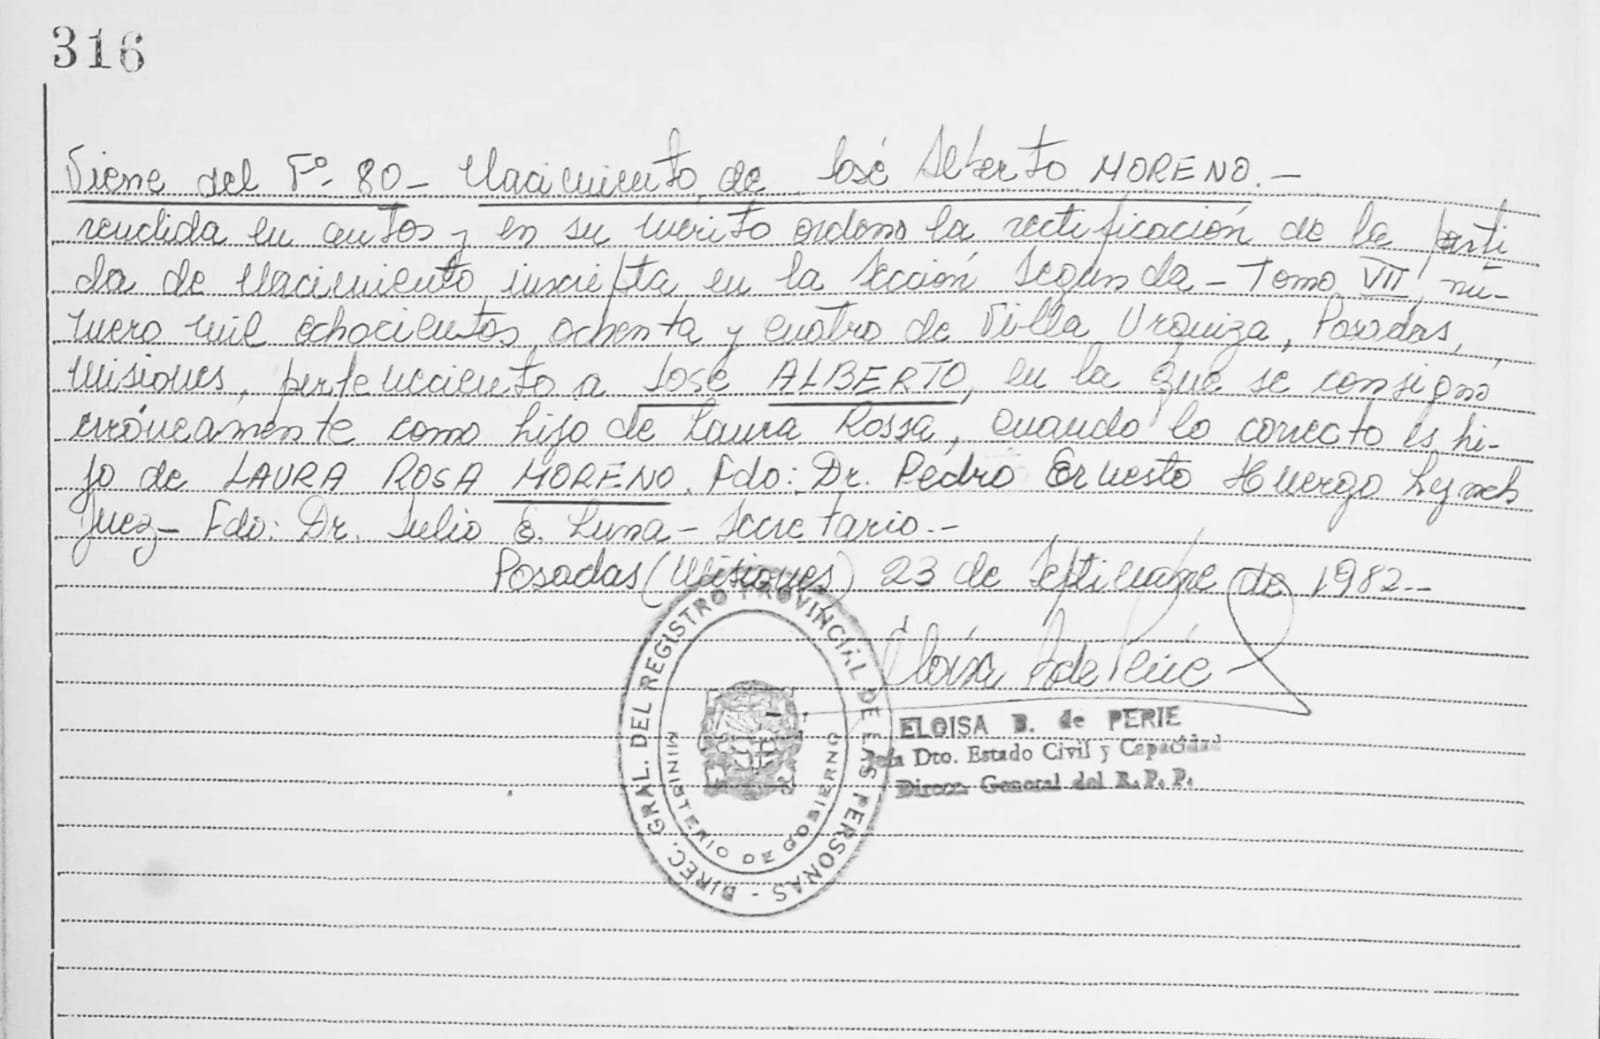 316
Viene del Fº 80 - Nacimiento de José Alberto MORENO.-
rendida en autos y en su merito ordeno la rectificación de la parti
da de Nacimiento inscripta en la Sección Segunda - Tomo VII, nú-
mero mil ochocientos ochenta y cuatro de Villa Urquiza, Posadas,
Misiones, perteneciento a José ALBERTO, en la que se consigno
erróneamente como hijo de Laura Rossa, cuando lo correcto es hi-
jo de LAURA ROSA MORENO. Fdo: Dr. Pedro Ernesto Huergo Lynch
Juez - Fdo: Dr. Julio E. Luna - Secretario.-
Posadas (Misiones) 23 de Septiembre de 1982.--
DIREC. GRAL. DEL REGISTRO PROVINCIAL DE LAS PERSONAS -
MINISTERIO DE GOBIERNO
ELOISA B. de PERIE
Jefa Dto. Estado Civil y Capacidad
Direcc. General del R. P. P.